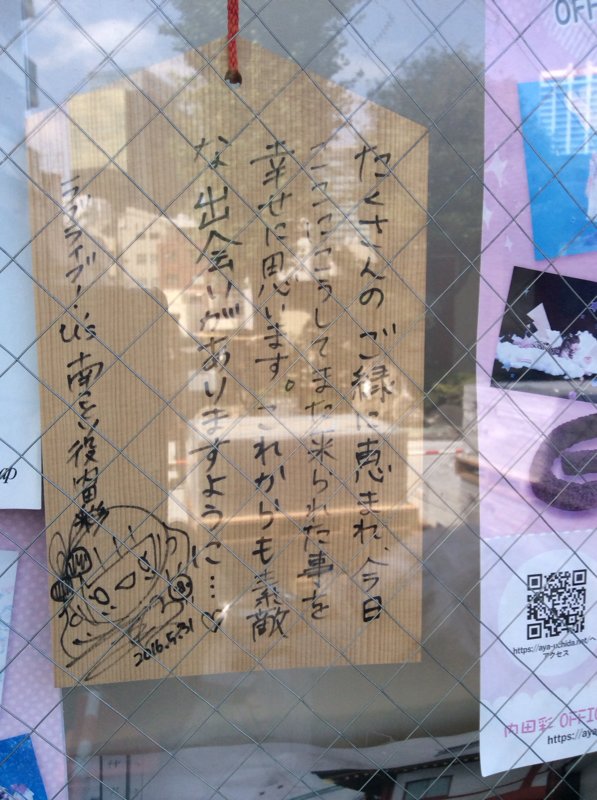 たくさんのご縁に恵まれ、今日
ここにこうしてまた来られた事を
幸せに思います。これからも素敵
な出会いがありますように…♡
ラブライブ！μ's 南ことり役 内田彩
2016.5.31
OFF
ap
https://aya-uchida.net/へ
アクセス
内田彩 OFFIC
https://aya